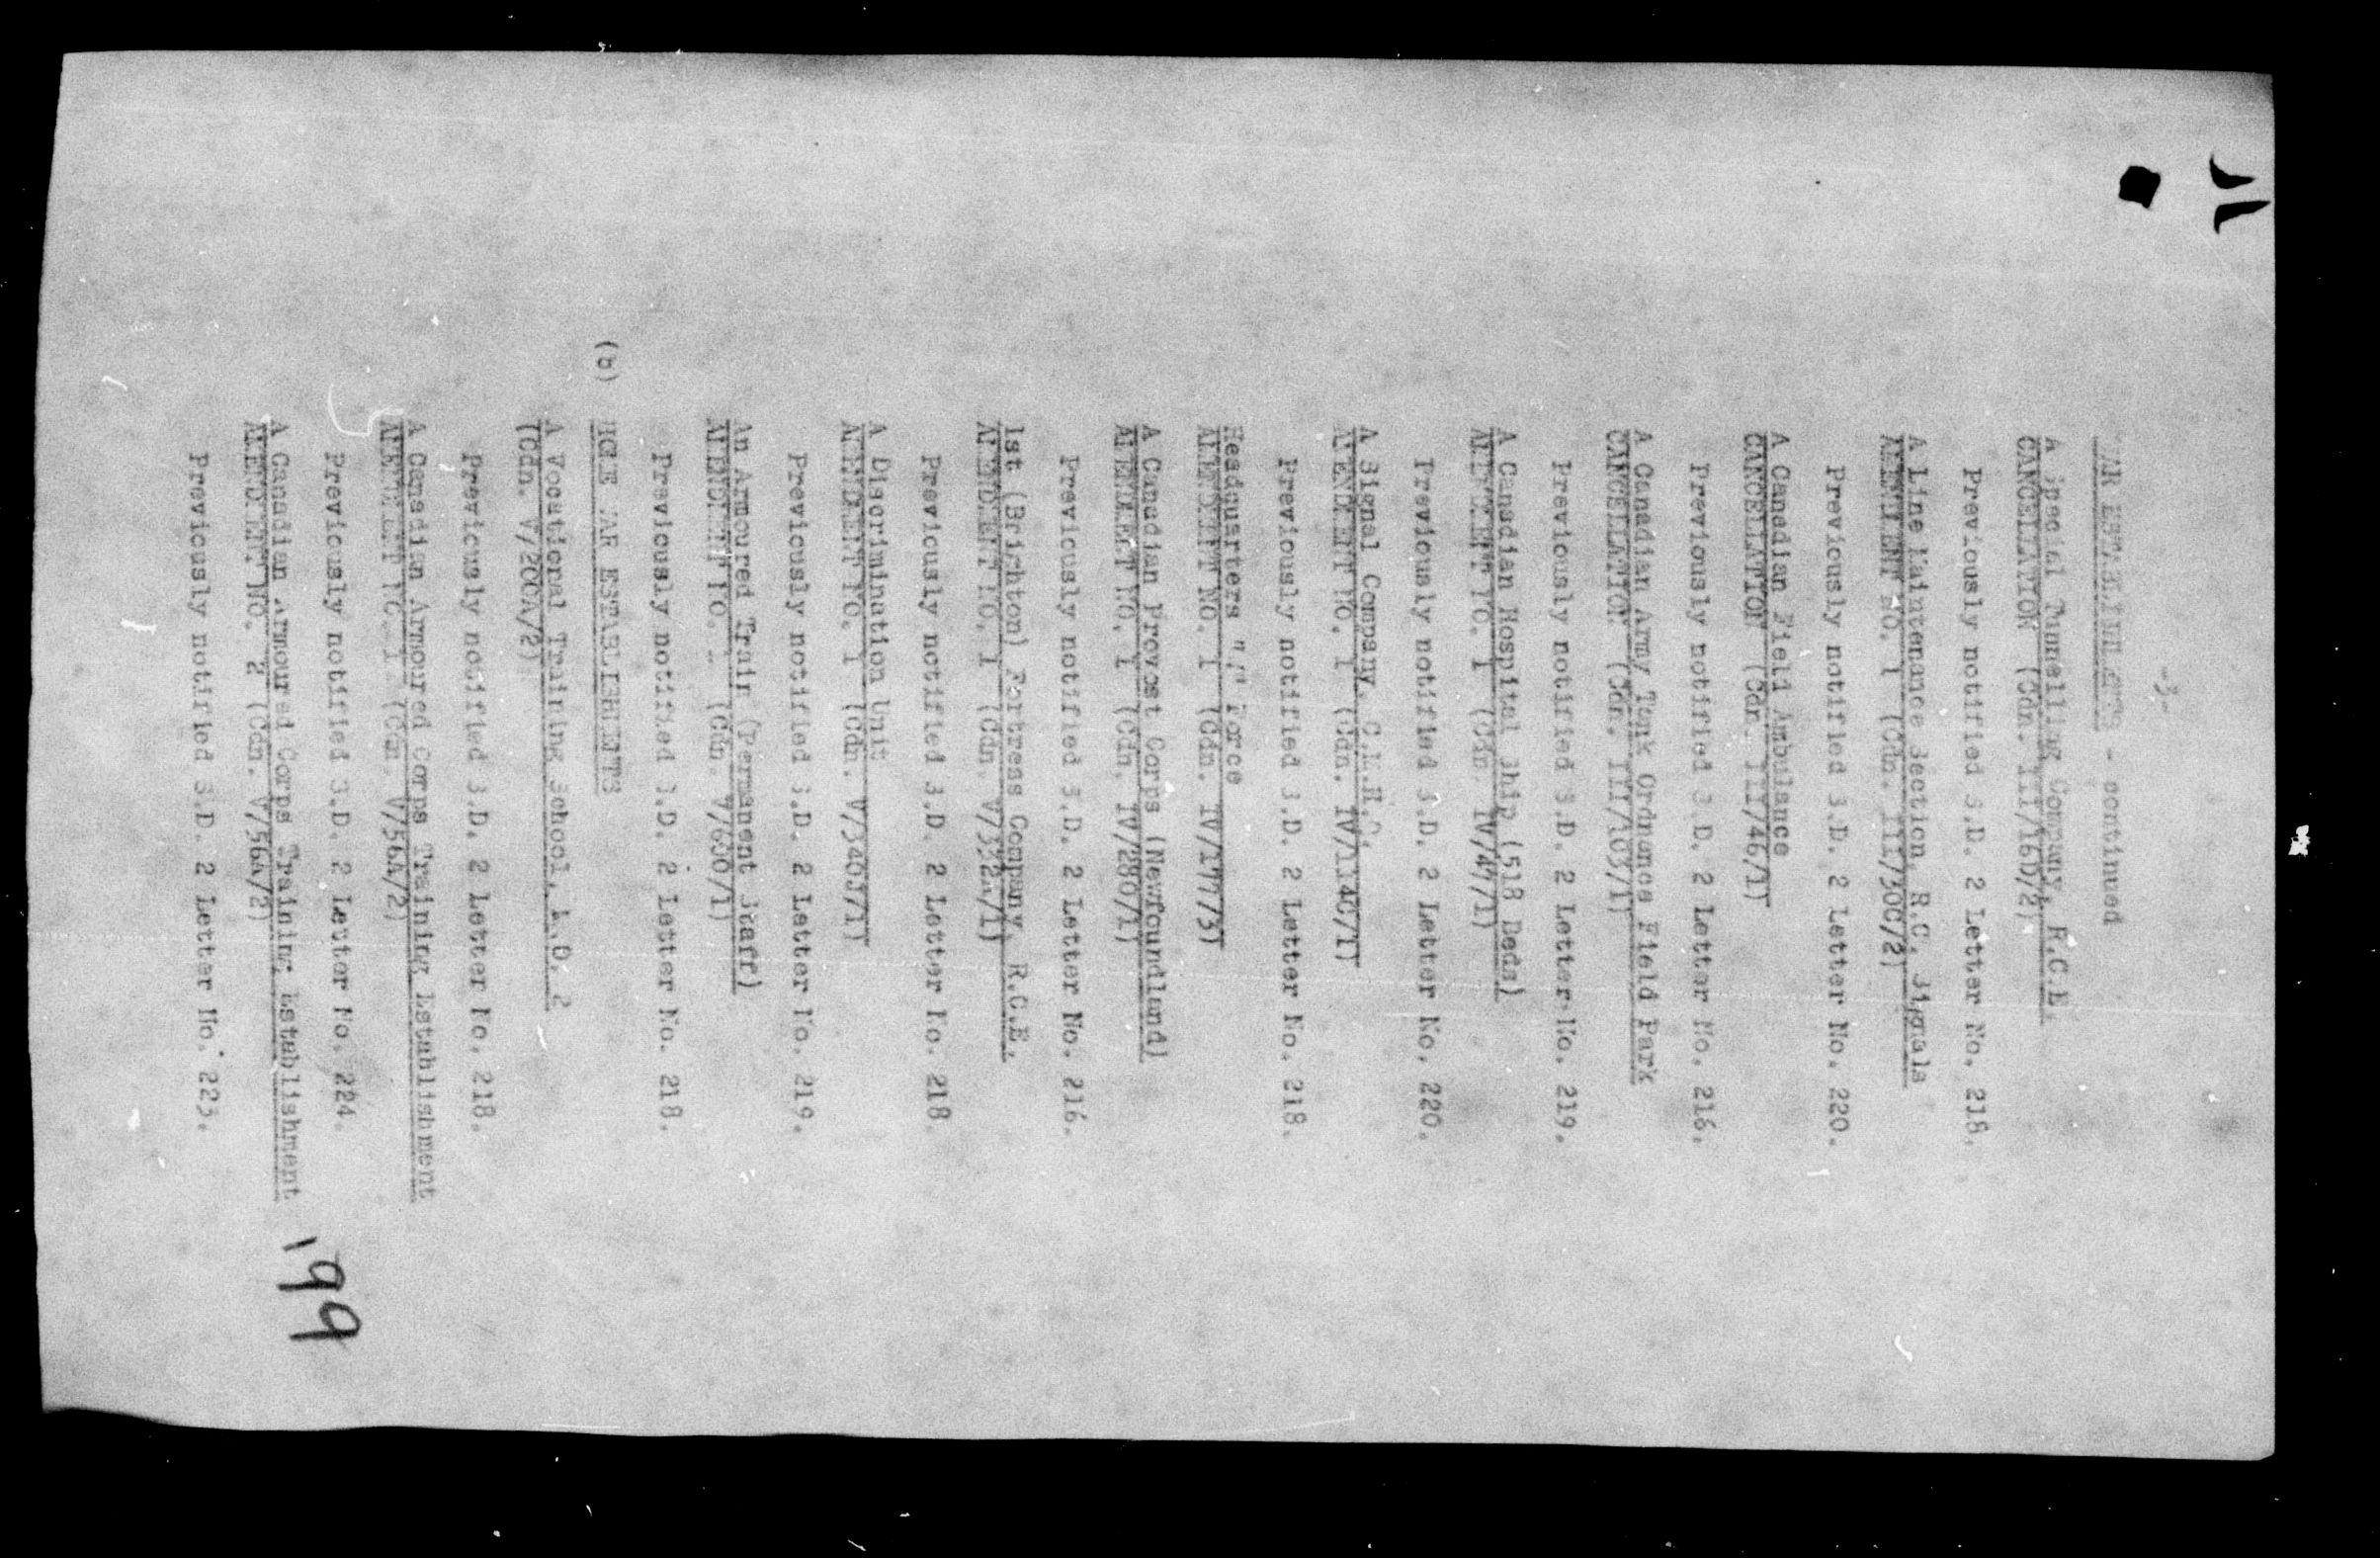 -3-
WAR ESTABLISHMENTS - continued
A Special Tunnelling Company, R.C.E.
CANCELLATION (Cdn. III/16D/2)
Previously notified S.D. 2 Letter No. 218.
A Line Maintenance Section, R.C. Signals
AMENDMENT NO. 1 (Cdn. III/30C/2)
Previously notified S.D. 2 Letter No. 220.
A Canadian Field Ambulance
CANCELLATION (Cdn. III/46/1)
Previously notified S.D. 2 Letter No. 216.
A Canadian Army Tank Ordnance Field Park
CANCELLATION (Cdn. III/103/1)
Previously notified S.D. 2 Letter No. 219.
A Canadian Hospital Ship (518 Beds)
AMENDMENT NO. 1 (Cdn. IV/47/1)
Previously notified S.D. 2 Letter No. 220.
A Signal Company,
AMENDMENT NO. 1 (Cdn. IV/114C/1)
Previously notified S.D. 2 Letter No. 218.
Headquarters Force
AMENDMENT NO. 1 (Cdn. IV/177/3)
A Canadian Provost Corps (Newfoundland)
AMENDMENT NO. 1 (Cdn. IV/280/1)
Previously notified S.D. 2 Letter No. 216.
1st (Brighton) Fortress Company, R.C.E.
AMENDMENT NO. 1 (Cdn. V/332A/1)
Previously notified S.D. 2 Letter No. 218.
A Discrimination Unit
AMENDMENT NO. 1 (Cdn. V/340J/1)
Previously notified S.D. 2 Letter No. 219.
An Armoured Train (Permanent Staff)
AMENDMENT NO. (Cdn. V/630/1)
Previously notified S.D. 2 Letter No. 218.
(b) HOME WAR ESTABLISHMENTS
A Vocational Training School, M.D. 2
(Cdn. V/200A/2)
Previously notified S.D. 2 Letter No. 218.
A Canadian Armoured Corps Training Establishment
AMENDMENT NO. 1 (Cdn. V/56A/2)
Previously notified S.D. 2 Letter No. 224.
A Canadian Armoured Corps Training Establishment
AMENDMENT NO. 2 (Cdn. V/56A/2)
Previously notified S.D. 2 Letter No. 225.
199